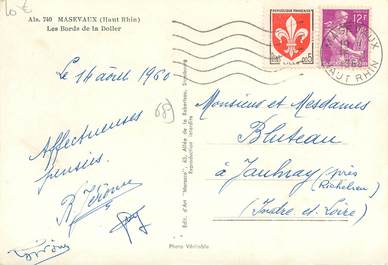 10€
Als. 740 MASEVAUX (Haut Rhin)
Les Bords de la Doller
Le 14 août 1960
68
Affectueuses
pensées.
Edit. d'Art "Marasco", 63, Allée de la Robertsau, Strasbourg
Reproduction interdite
Photo Véritable
RÉPUBLIQUE FRANÇAISE
LILLE
12F
HAUT RHIN
Monsieur et Mesdames
Bluteau
à Jaulnay (près
Richelieu)
(Indre-et-Loire)